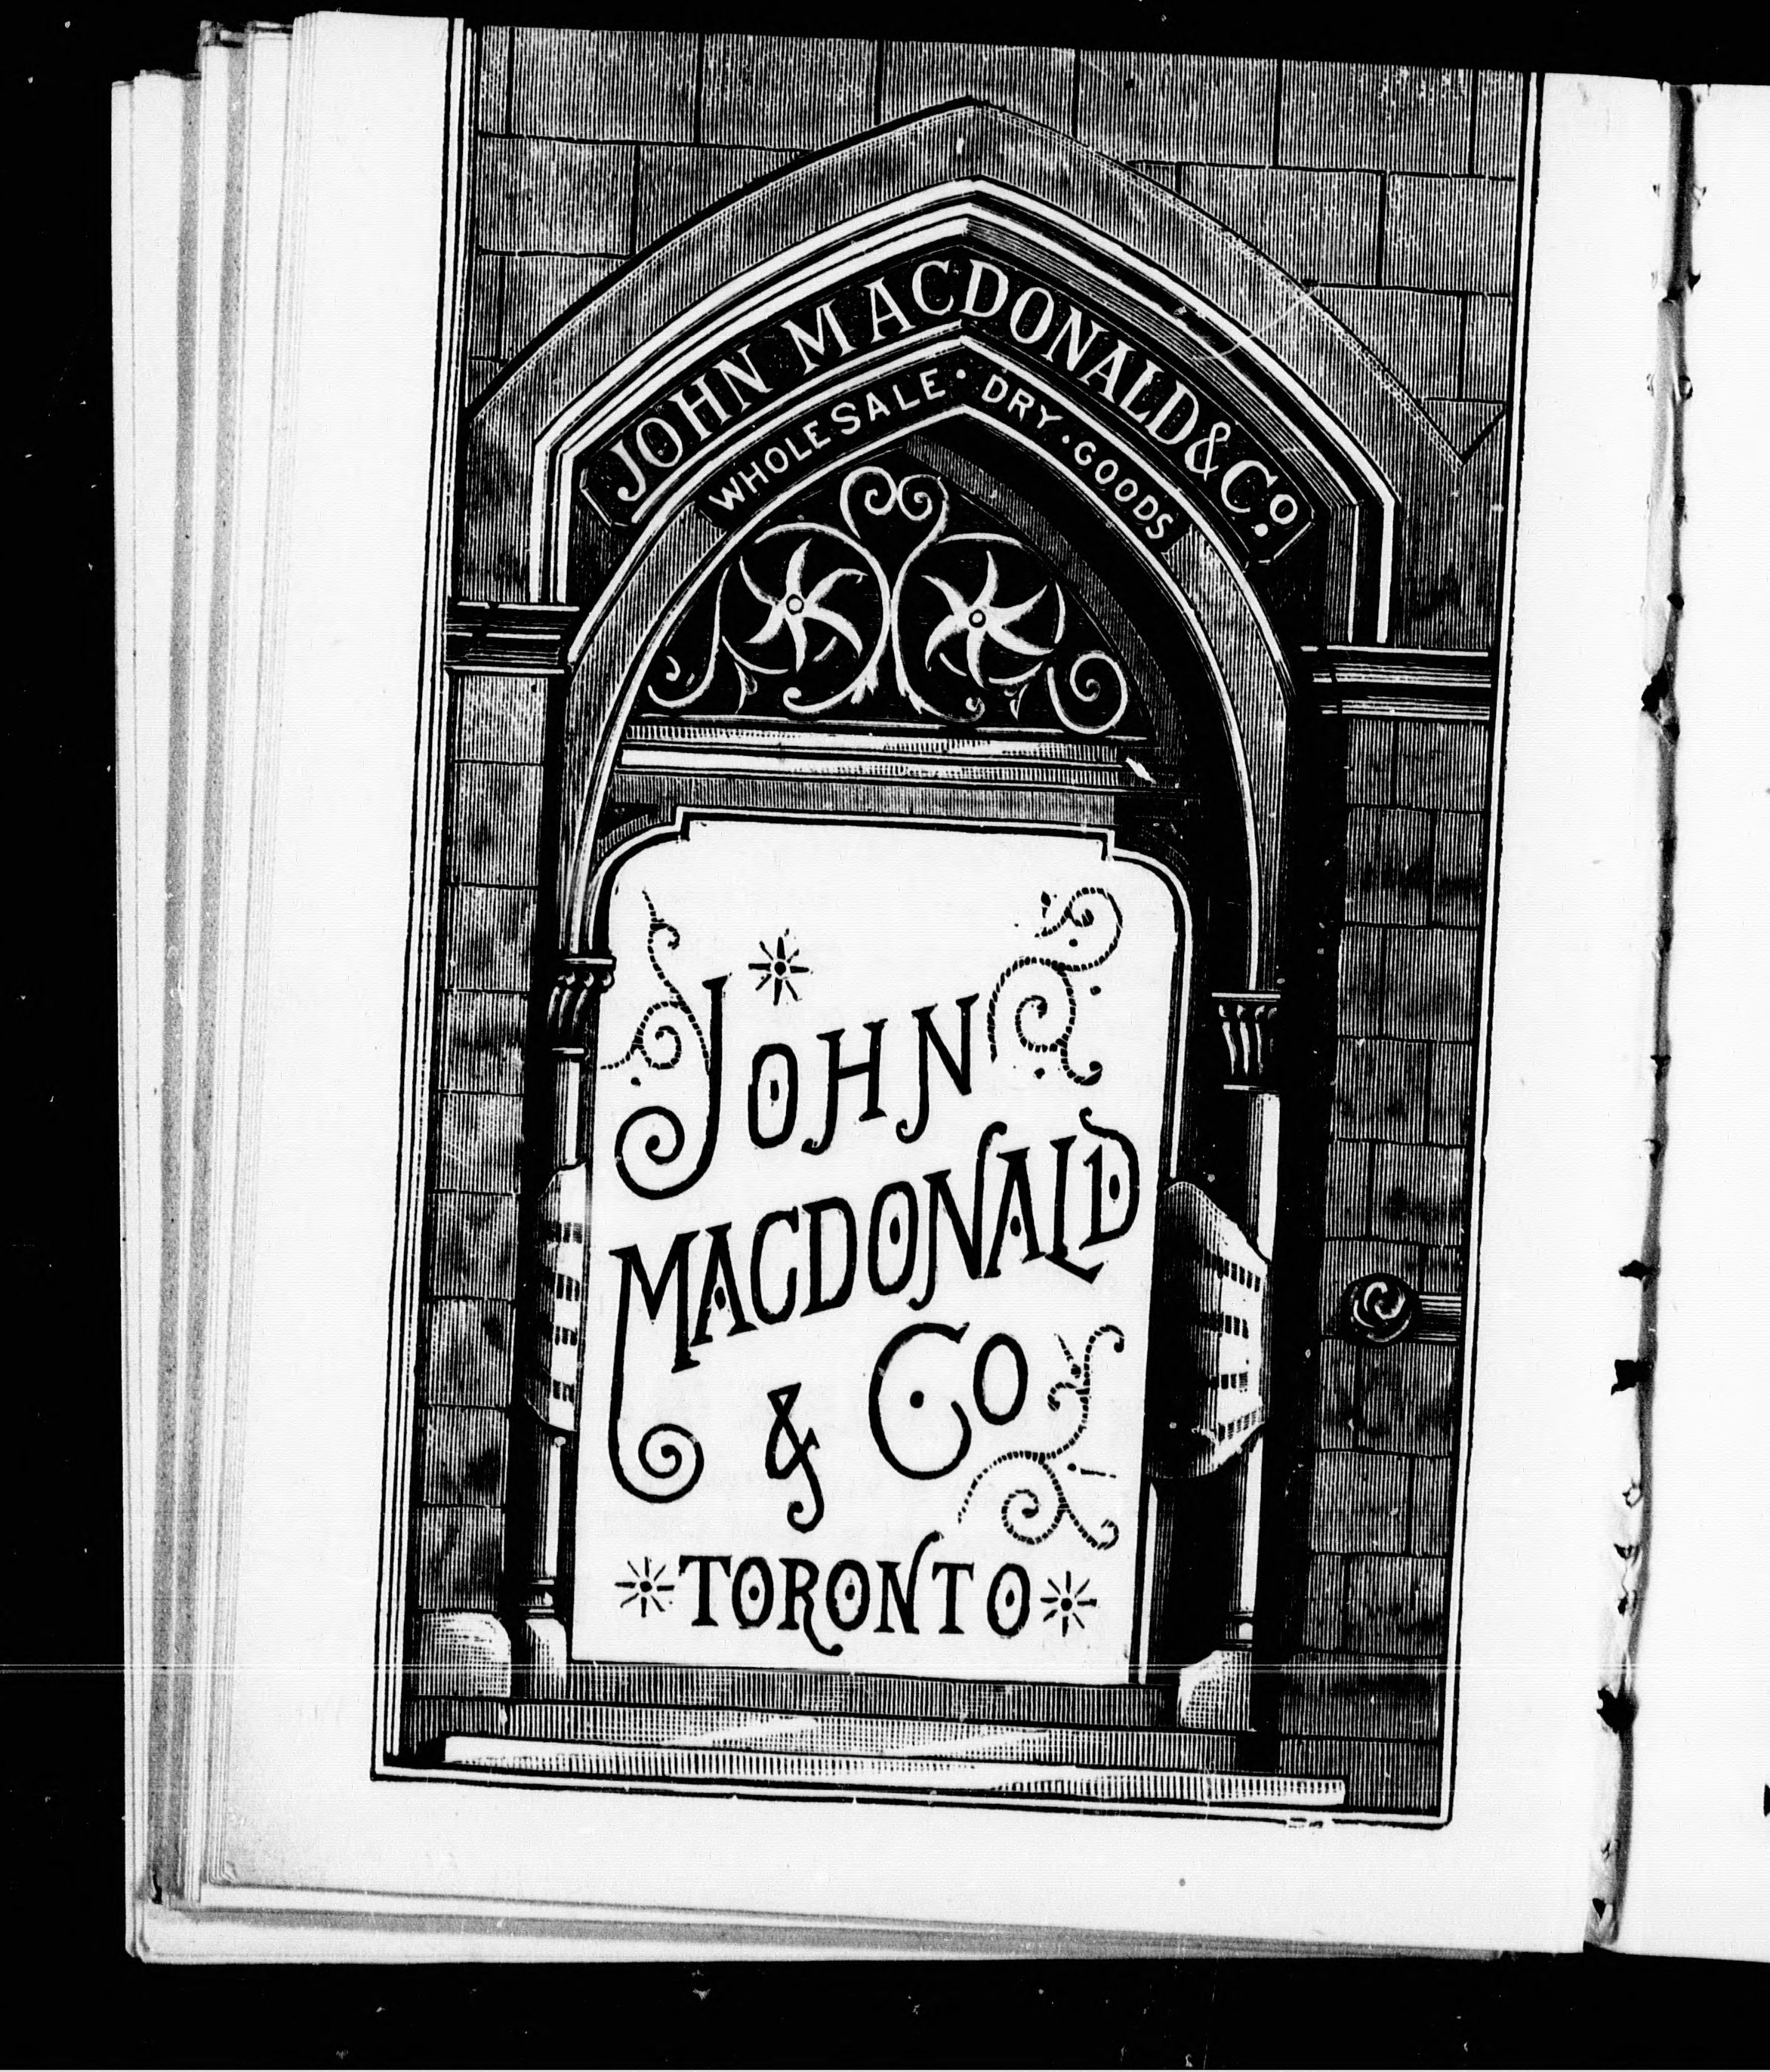 JOHN MACDONALD & Co.
WHOLESALE · DRY · GOODS
JOHN
MACDONALD
& Co
TORONTO